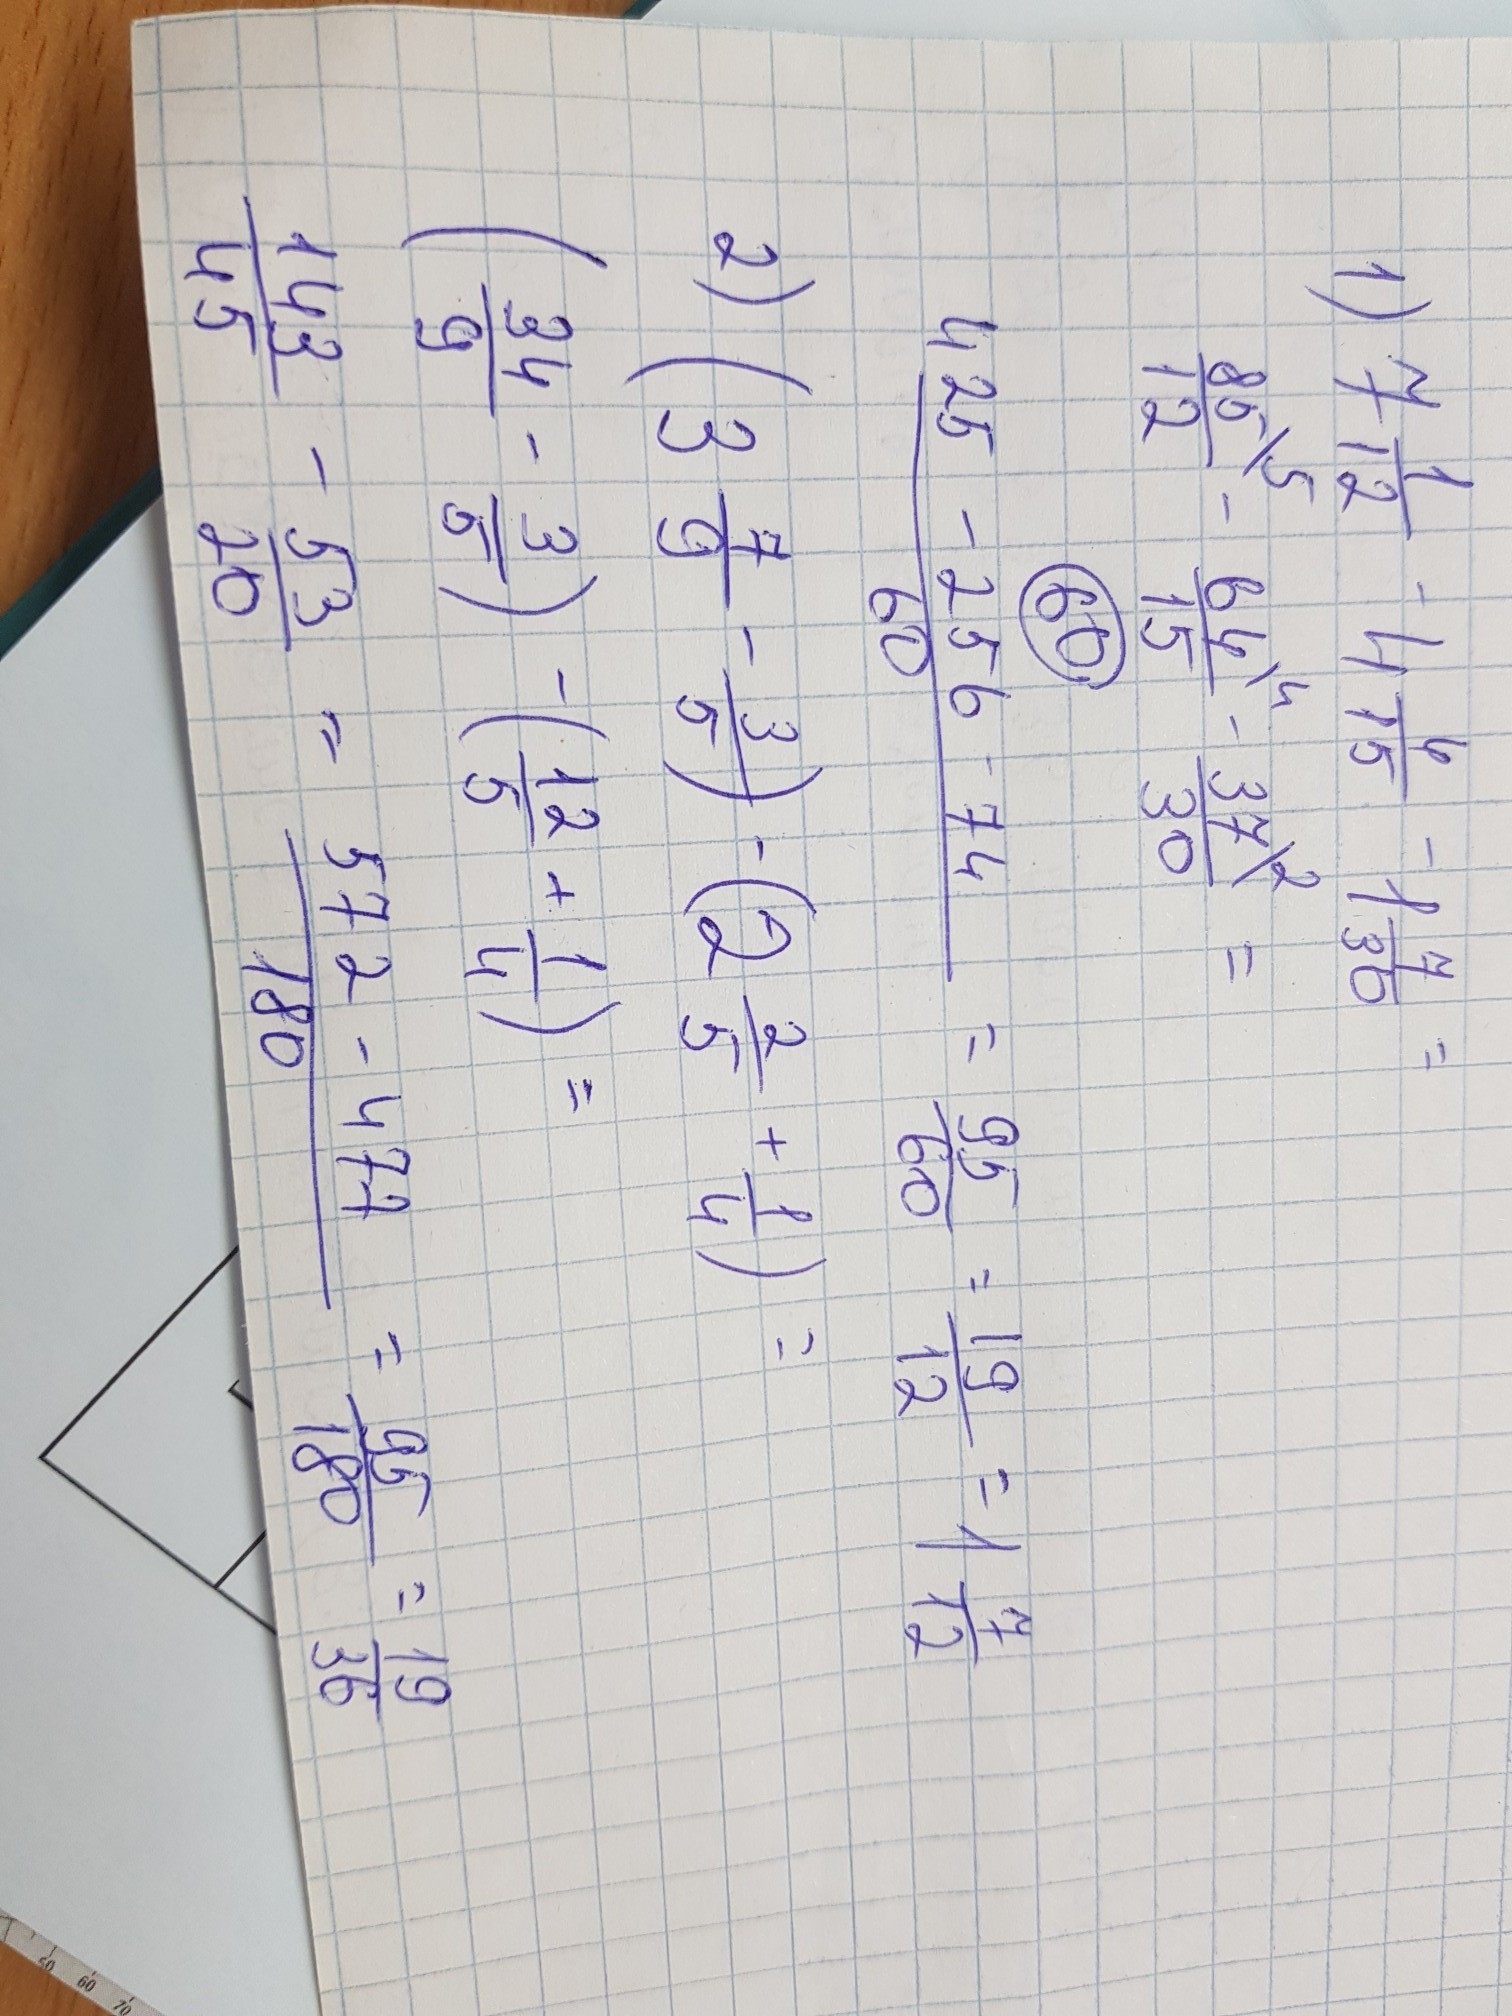 1) 7 1/12 - 4 4/15 - 1 7/30 =
85/12 \5 - 64/15 \4 - 37/30 \2 =
60
425 - 256 - 74 / 60 = 95/60 = 19/12 = 1 7/12
2) (3 7/9 - 3/5) - (2 2/5 + 1/4) =
(34/9 - 3/5) - (12/5 + 1/4) =
143/45 - 53/20 = 572 - 477 / 180 = 95/180 = 19/36
50 60 70